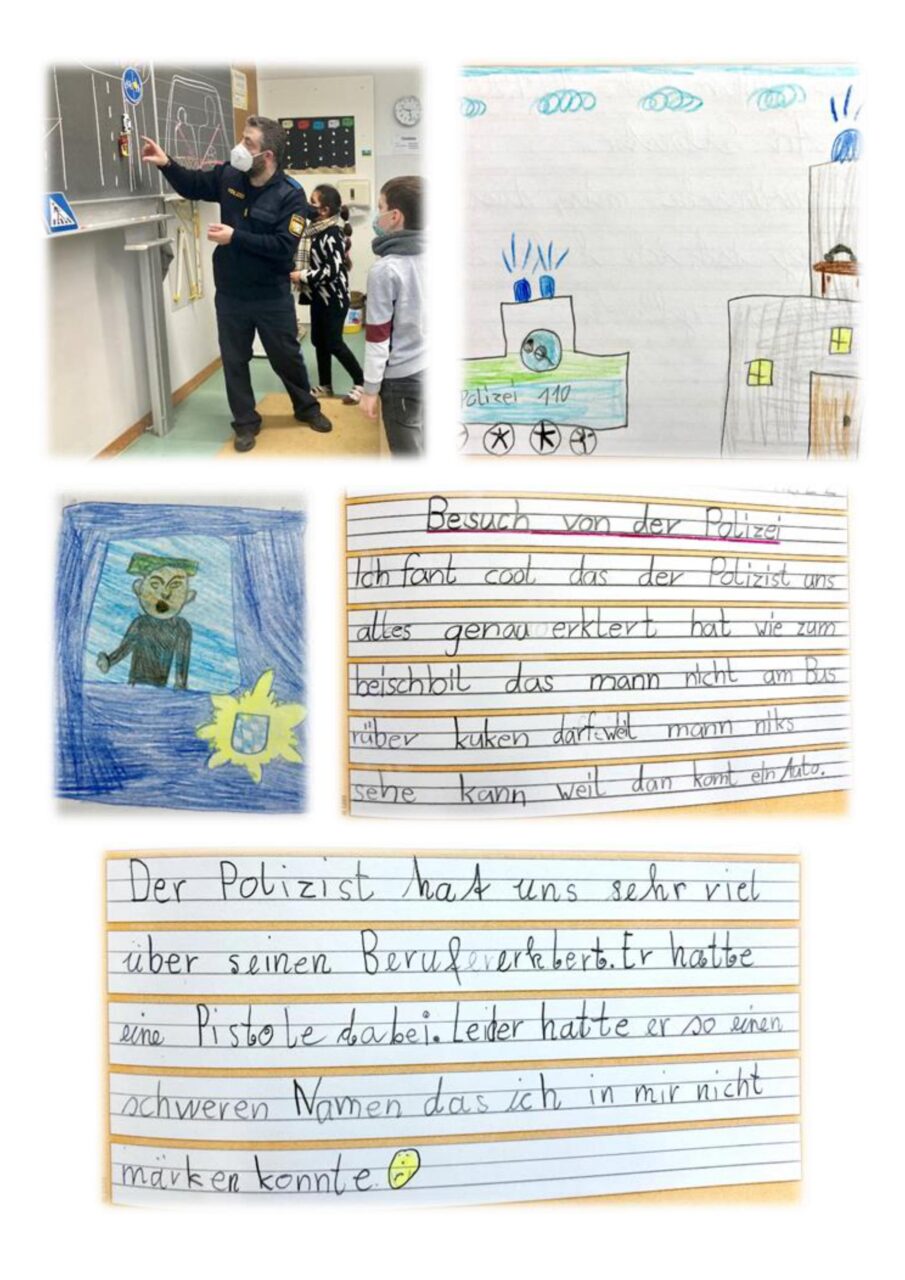 POLIZEI
Polizei 110
Besuch von der Polizei
Ich fant cool das der Polizist uns
alles genau erklert hat wie zum
beischbil das mann nicht am Bus
rüber kuken darf weil mann niks
sehe kann weil dan komt ein Auto.
Der Polizist hat uns sehr viel
über seinen Beruf erklert. Er hatte
eine Pistole dabei. Leider hatte er so einen
schweren Namen das ich in mir nicht
märken konnte